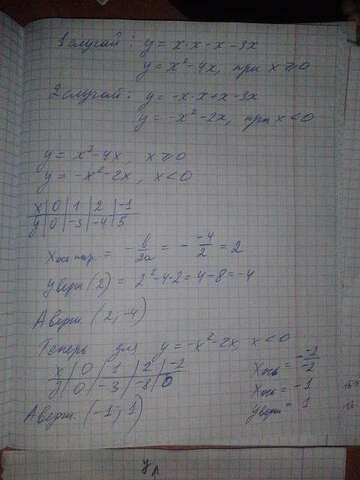 1 случай: y = x·x - x - 3x
y = x² - 4x, при x ≥ 0
2 случай: y = -x·x + x - 3x
y = -x² - 2x, при x < 0
y = x² - 4x, x ≥ 0
y = -x² - 2x, x < 0
x | 0 | 1 | 2 | -1
y | 0 | -3 | -4 | 5
= - b/2a = - -4/2 = 2
y верш (2) = 2² - 4·2 = 4 - 8 = -4
A верш. (2; -4)
Теперь для y = -x² - 2x, x < 0
x | 0 | 1 | 2 | -2
y | 0 | -3 | -8 | 0
A верш. (-1; 1)
x ось = - -2/-2
x ось = -1
y верш = 1
y